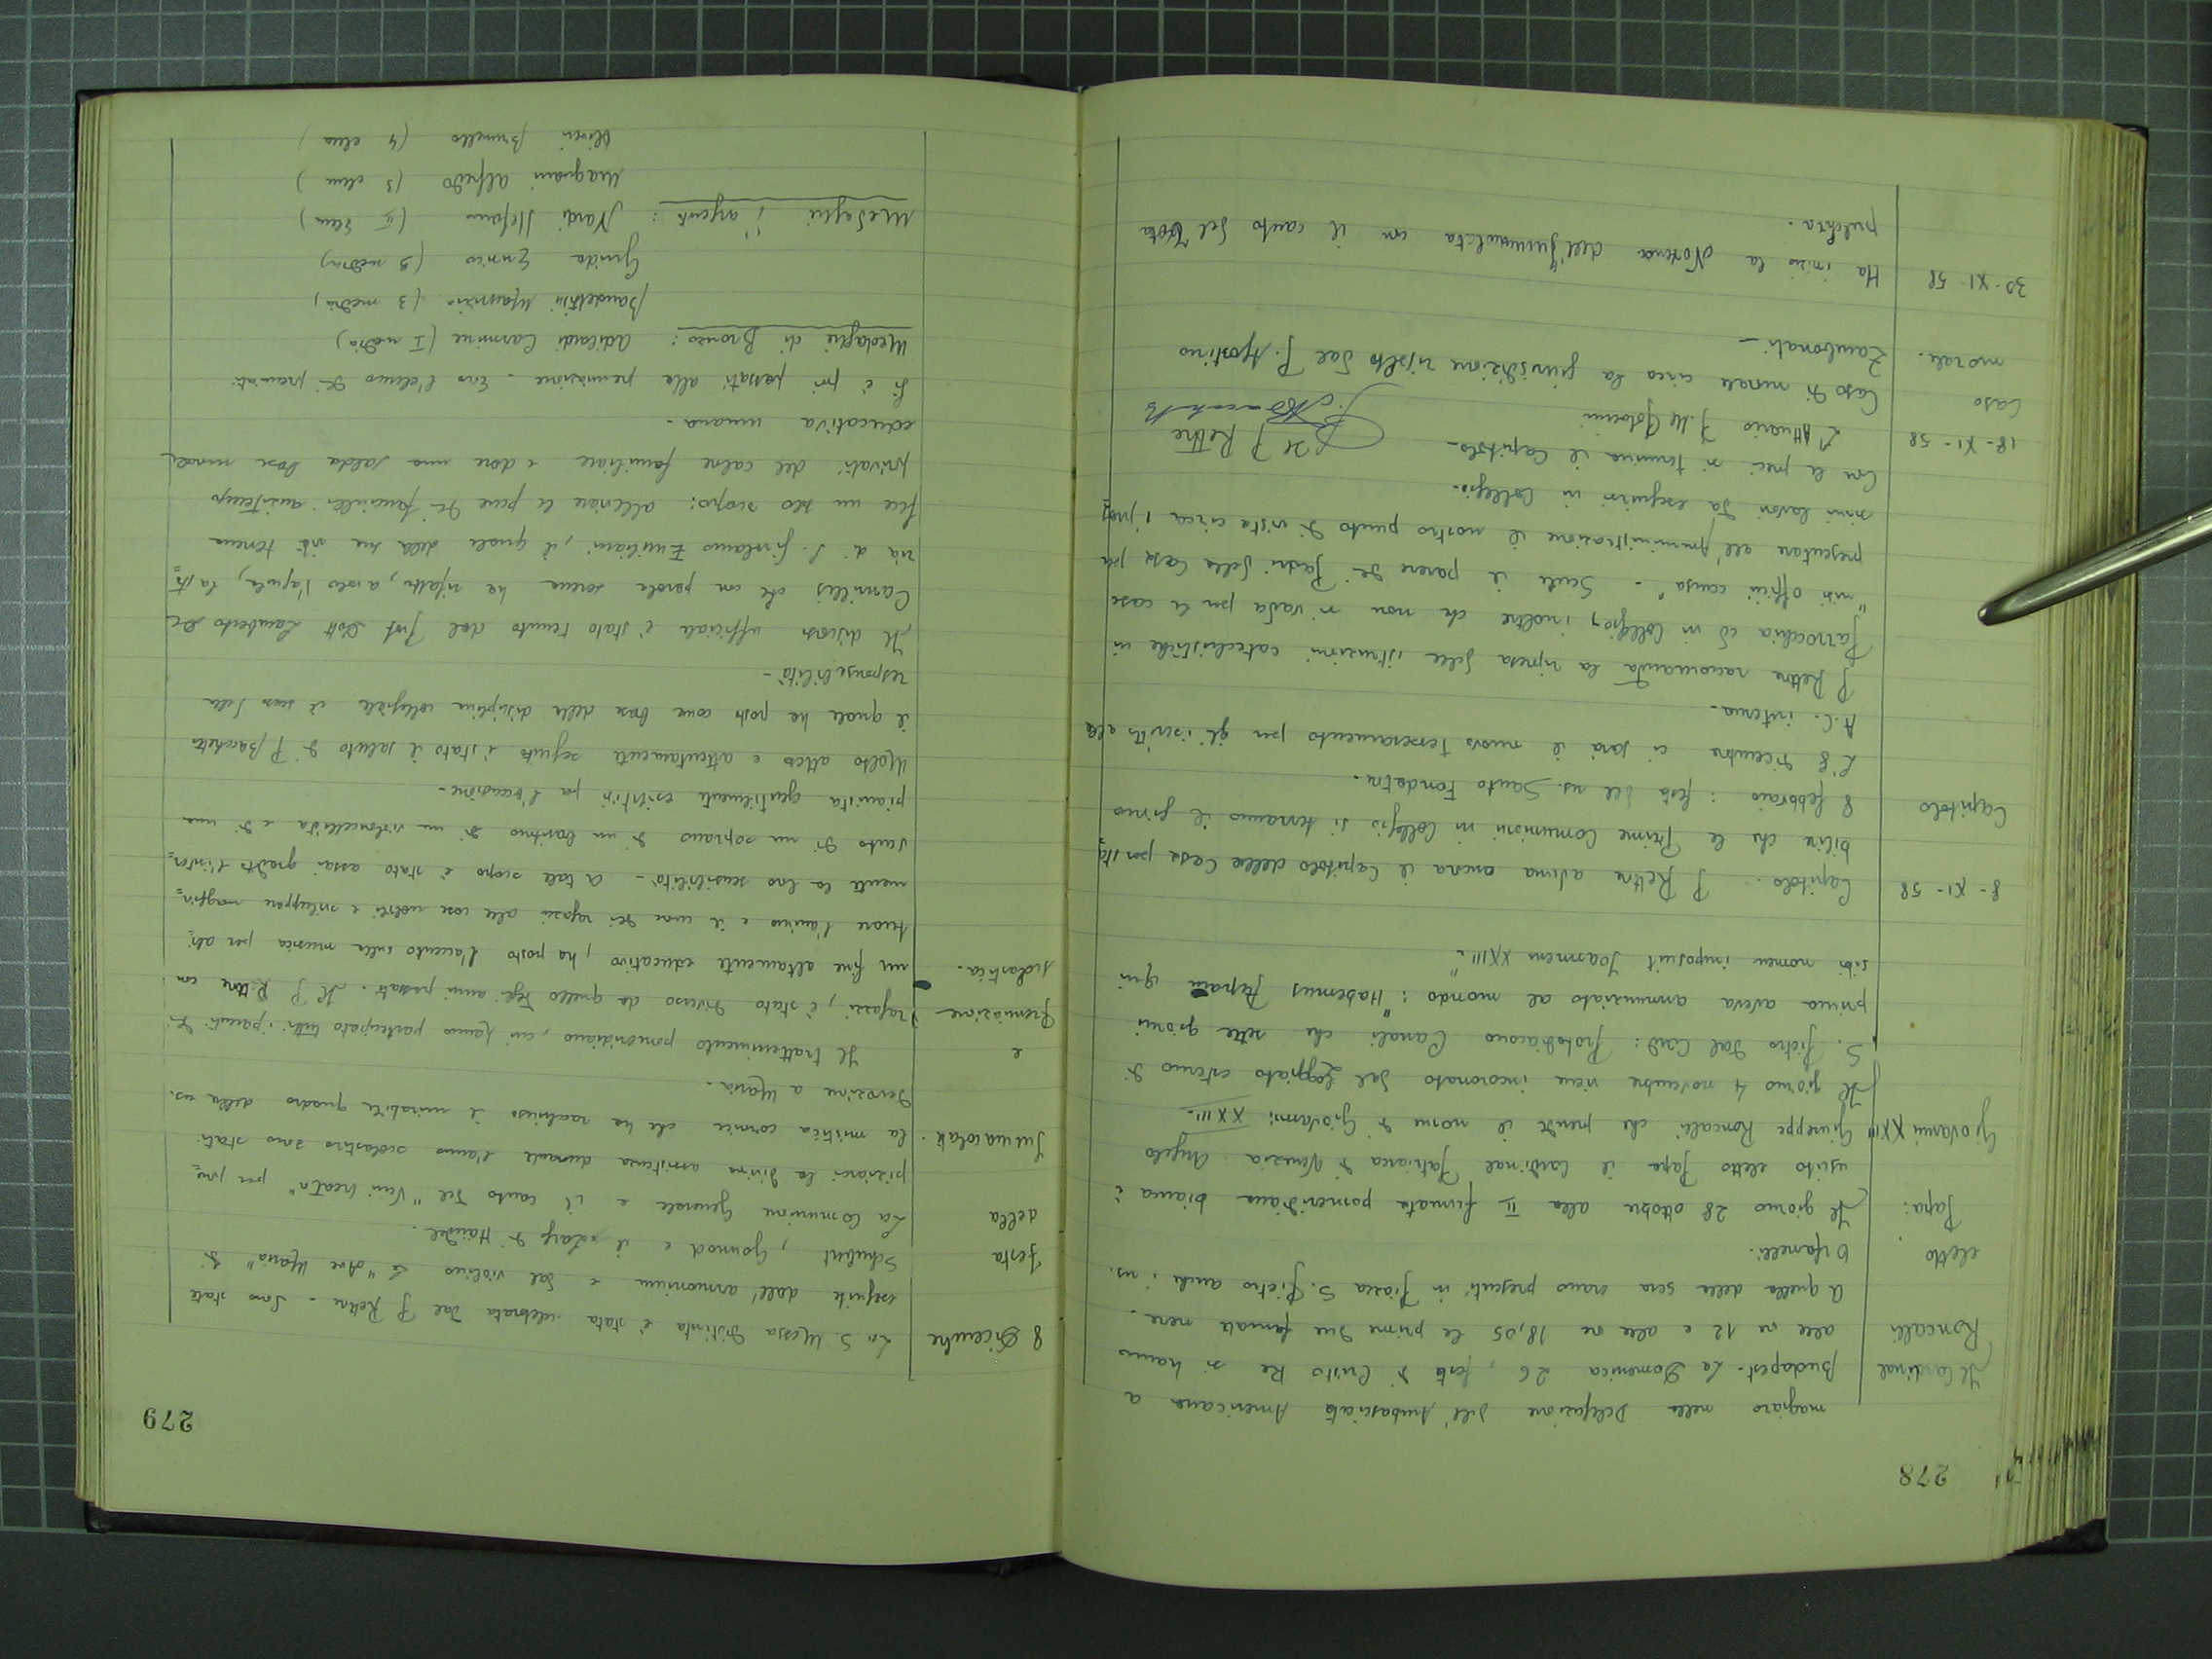 278
magiaro nella Delegazione dell'Ambasciata Americana a
Il Cardinal Budapest. La Domenica 26, festa di Cristo Re si hanno
Roncalli alle ore 12 e alle ore 18,05 le prime due fumate nere.
eletto A quella della sera erano presenti in Piazza S. Pietro anche i ns.
Orfanelli.
Papa: Il giorno 28 ottobre alla II fumata pomeridiana bianca è
uscito eletto Papa il Cardinal Patriarca di Venezia Angelo
Giovanni XXIII Giuseppe Roncalli che prende il nome di Giovanni XXIII.
Il giorno 4 novembre viene incoronato dal Loggiato esterno di
S. Pietro dal Card: Protodiacono Canali che sette giorni
prima aveva annunziato al mondo: "Habemus Papam qui
sibi nomen imposuit Joannem XXIII".
8-XI-58 Capitolo. P. Rettore aduna ancora il Capitolo della Casa per sta=
bilire che le Prime Comunioni in Collegio si terranno il giorno
Capitolo 8 febbraio: festa del ns. Santo Fondatore.
L'8 dicembre ci sarà il nuovo tesseramento per gl'iscritti alla
A.C. interna.
P. Rettore raccomanda la ripresa delle istruzioni catechistiche in
Parrocchia ed in Collegio; inoltre che non si vada per le case
"nisi officii causa". Sente il parere dei Padri della Casa per
presentare all'Amministrazione il nostro punto di vista circa i pros=
simi lavori da eseguirsi in Collegio.
Con le preci si termina il Capitolo.
L'Attuario P. M. Colombi Il P. Rettore
18-XI-58 P. Bacchetti
Caso Caso di morale circa la giurisdizione risolto dal P. Agostino
morale. Zambonati.
30-XI-58 Ha inizio la Novena dell'Immacolata con il canto del Tota
pulchra.
279
8 Dicembre La S. Messa distinta è stata celebrata dal P. Rettore. Sono state
eseguite dall'armonium e dal violino le "Ave Maria" di
Festa Schubert, Gounod e il Largo di Haendel.
della La Comunione Generale e il canto del "Veni Creator" per pro=
piziarci la divina assistenza durante l'anno scolastico sono stati
Immacolata. la mistica cornice che ha racchiuso il mirabile quadro della ns.
devozione a Maria.
e Il trattenimento pomeridiano, cui hanno partecipato tutti i parenti dei
Premiazione ragazzi, è stato diverso da quello degli anni passati. Il P. Rettore con
scolastica. un fine altamente educativo, ha posto l'accento sulla musica per abi=
tuare l'animo e il cuore dei ragazzi alle cose nobili e sviluppare maggior=
mente la loro sensibilità. A tale scopo è stato assai gradito l'inter=
vento di un soprano di un baritono di un violoncellista e di una
pianista gentilmente esibitisi per l'occasione.
Molto atteso e attentamente seguito è stato il saluto di P. Bacchetti
il quale ha posto come base della disciplina collegiale il senso della
responsabilità.
Il discorso ufficiale è stato tenuto dal Prof. Dott. Lamberto De
Camillis che con parola serena ha rifatto, a volo d'aquila, la sto=
ria di S. Girolamo Emiliani, il quale della sua vita terrena
fece un solo scopo: alleviare le pene dei fanciulli anzitempo
privati del calore familiare e dare una salda base morale
educativa umana.
Si è poi passati alla premiazione. Ecco l'elenco dei premiati:
Medaglie di Bronzo: Adilardi Carmine (I media)
Bandettini Maurizio (3 media)
Guida Enrico (3 media)
Medaglie d'argento: Nardi Stefano (II Elem)
Magnani Alfredo (3 elem)
Olivieri Brunello (4 elem)